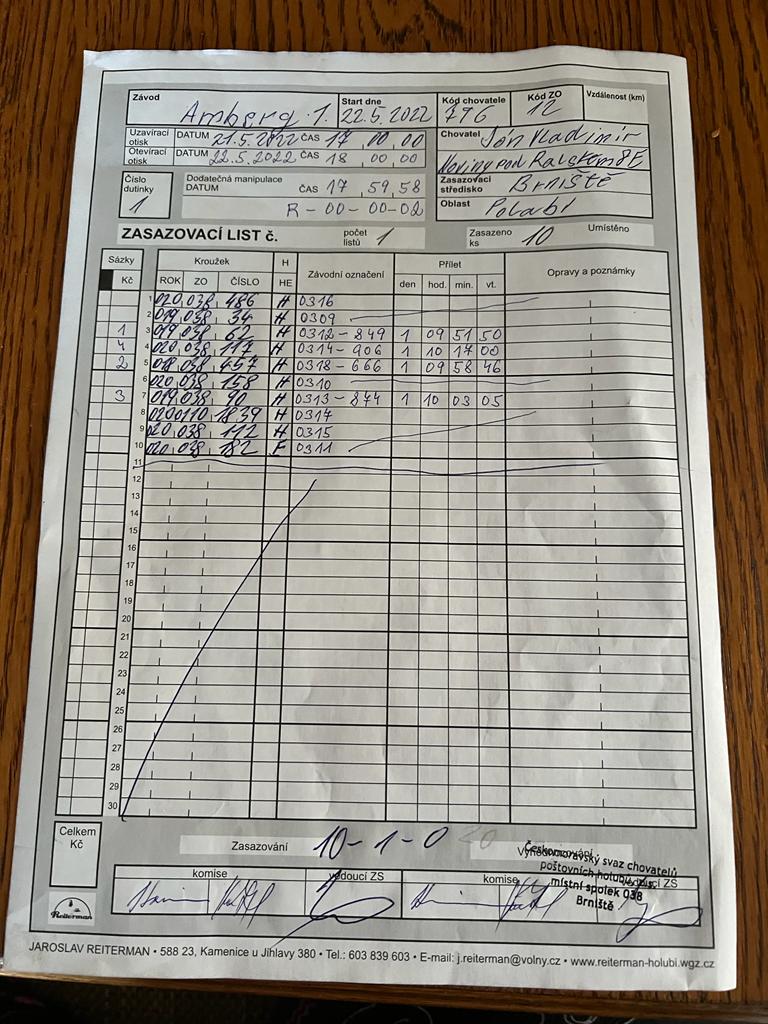 Závod Start dne Kód chovatele Kód ZO Vzdálenost (km)
Amberg 1. 22.5.2022 796 12
Uzavírací otisk DATUM 21.5.2022 ČAS 17 00 00
Otevírací otisk DATUM 22.5.2022 ČAS 18 00 00
Chovatel Ján Vladimír
Noviny pod Ralskem 85
Číslo dutinky 1
Dodatečná manipulace
DATUM ČAS 17 59 58
R-00-00-02
Zasazovací středisko Brniště
Oblast Polabí
ZASAZOVACÍ LIST č. počet listů 1 Zasazeno ks 10 Umístěno
Sázky Kroužek H Závodní označení Přílet Opravy a poznámky
Kč ROK ZO ČÍSLO HE den hod. min. vt.
1 020 038 486 H 0316
2 019 038 34 H 0309
1 3 019 038 62 H 0312-849 1 09 51 50
4 4 020 038 117 H 0314-906 1 10 17 00
2 5 018 038 457 H 0318-666 1 09 58 46
6 020 038 158 H 0310
3 7 019 038 90 H 0313-874 1 10 03 05
8 020 0110 1839 H 0317
9 020 038 112 H 0315
10 020 038 182 F 0311
11
12
13
14
15
16
17
18
19
20
21
22
23
24
25
26
27
28
29
30
Celkem Kč
Zasazování 10-1-0
Českomoravský svaz chovatelů
poštovních holubů
místní spolek 038
Brniště
komise vedoucí ZS komise vedoucí ZS
Reiterman
JAROSLAV REITERMAN • 588 23, Kamenice u Jihlavy 380 • Tel.: 603 839 603 • E-mail: j.reiterman@volny.cz • www.reiterman-holubi.wgz.cz